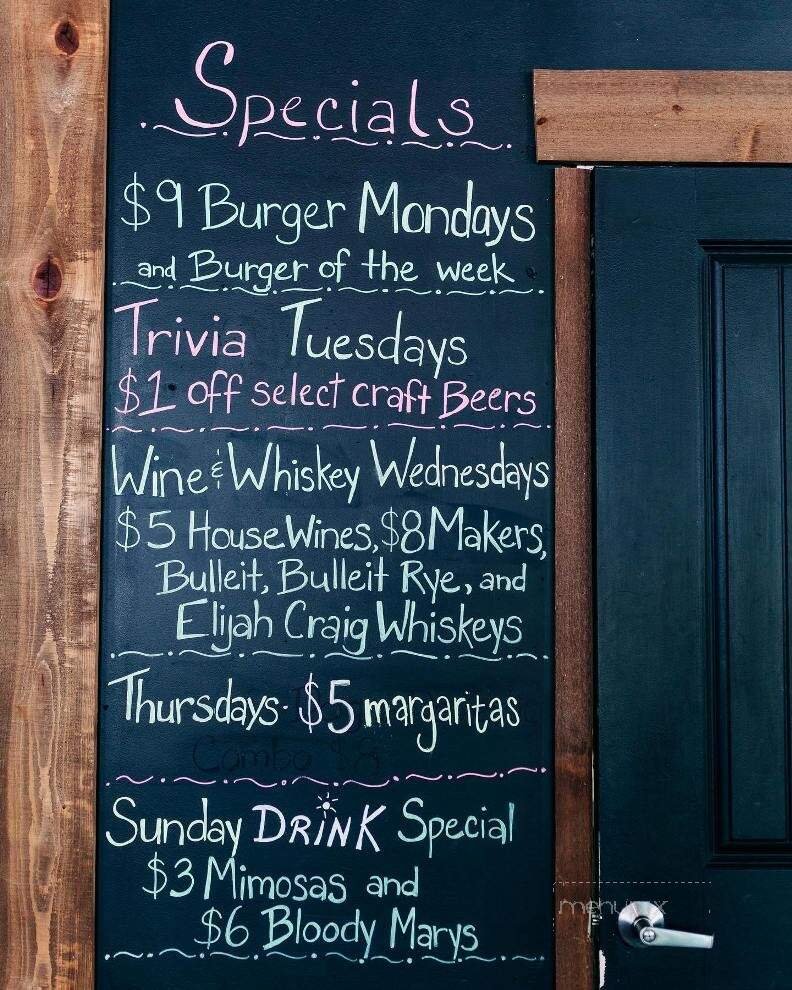 Specials
$9 Burger Mondays
and Burger of the week
Trivia Tuesdays
$1 off select craft Beers
Wine & Whiskey Wednesdays
$5 House Wines, $8 Makers,
Bulleit, Bulleit Rye, and
Elijah Craig Whiskeys
Thursdays - $5 margaritas
Combo
Sunday DRINK Special
$3 Mimosas and
$6 Bloody Marys